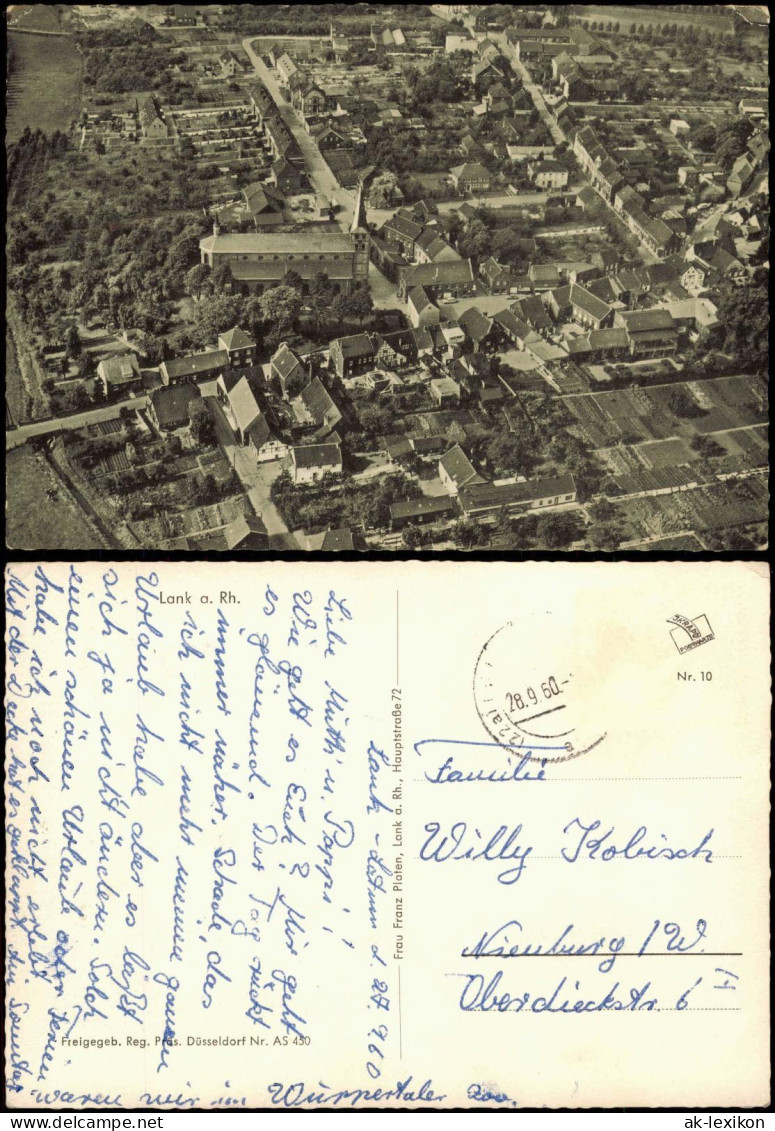 Lank a. Rh.
Lank-Latum d. 27.9.60
Liebe Mutti u. Pappi!
Wie geht es Euch? Mir geht
es glänzend. Der Tag rückt
immer näher. Schade, das
ich nicht mehr meinen ganzen
Urlaub habe aber es läßt
sich ja nicht ändern. Solch
einen schönen Urlaub oder Ferien
habe ich noch nicht erlebt.
Mit der Decke hat es geklappt. Am Sonntag
waren wir im Wuppertaler Zoo.
Freigegeb. Reg. Präs. Düsseldorf Nr. AS 450
Frau Franz Platen, Lank a. Rh., Hauptstraße 72
(22a)
28.9.60.
SKRABO
POSTKARTE
Nr. 10
Familie
Willy Kobisch
Nienburg/W.
Oberdieckstr. 6
delcampe.net
ak-lexikon